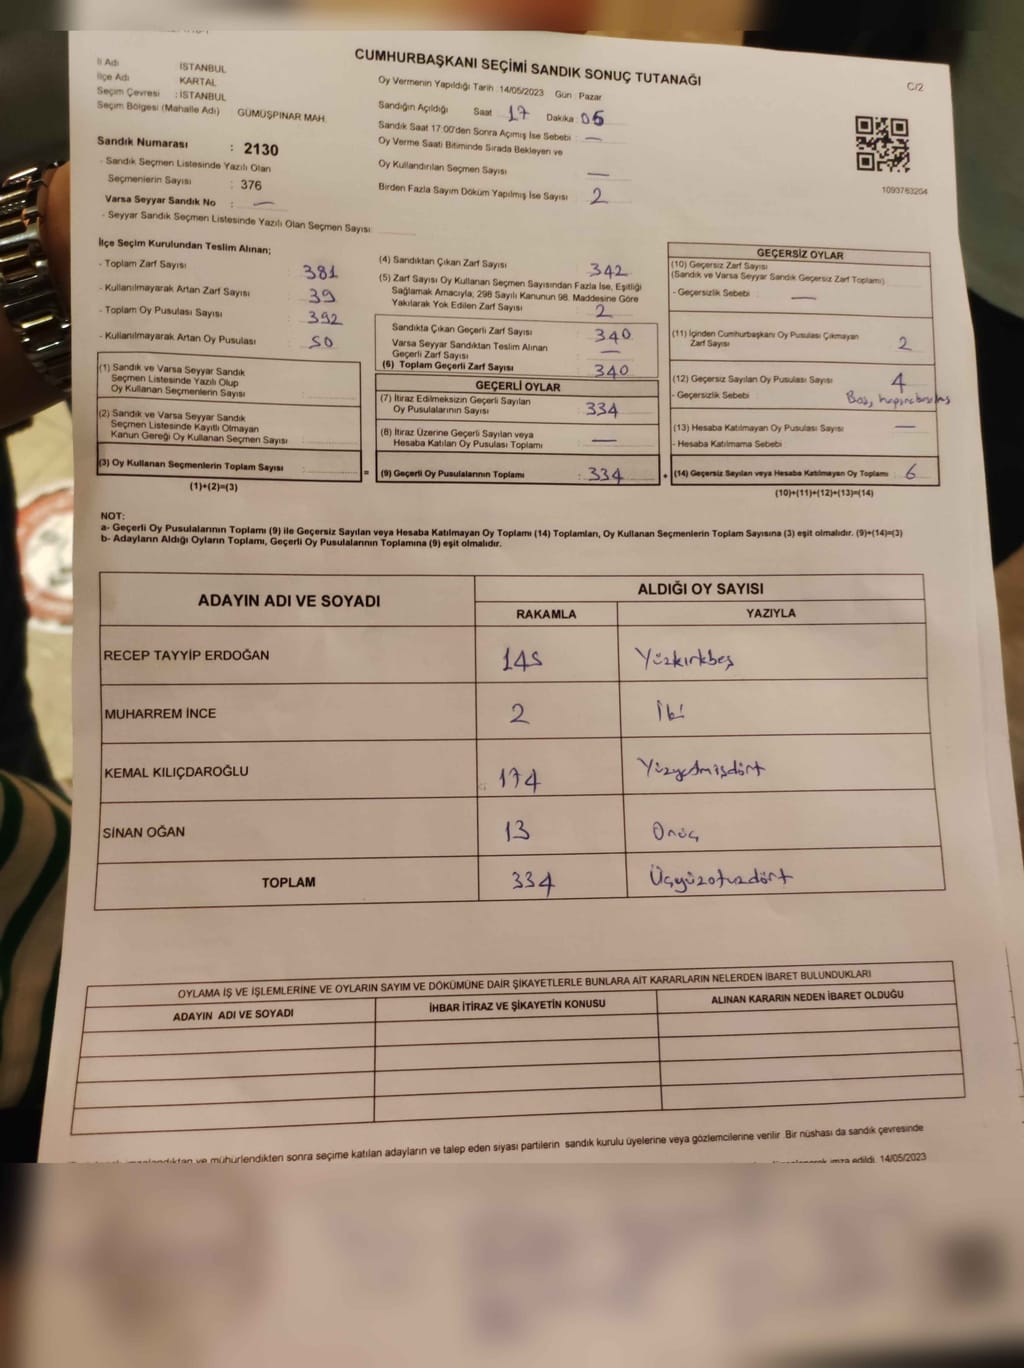 CUMHURBAŞKANI SEÇİMİ SANDIK SONUÇ TUTANAĞI
C/2
İl Adı İSTANBUL
İlçe Adı KARTAL
Seçim Çevresi : İSTANBUL
Seçim Bölgesi (Mahalle Adı) GÜMÜŞPINAR MAH.
Sandık Numarası : 2130
- Sandık Seçmen Listesinde Yazılı Olan
Seçmenlerin Sayısı : 376
Varsa Seyyar Sandık No : —
- Seyyar Sandık Seçmen Listesinde Yazılı Olan Seçmen Sayısı:
Oy Vermenin Yapıldığı Tarih : 14/05/2023 Gün : Pazar
Sandığın Açıldığı Saat : 17 Dakika : 05
Sandık Saat 17:00'den Sonra Açımış İse Sebebi : —
Oy Verme Saati Bitiminde Sırada Bekleyen ve
Oy Kullandırılan Seçmen Sayısı —
Birden Fazla Sayım Döküm Yapılmış İse Sayısı : 2
1093763204
İlçe Seçim Kurulundan Teslim Alınan;
- Toplam Zarf Sayısı : 381
- Kullanılmayarak Artan Zarf Sayısı : 39
- Toplam Oy Pusulası Sayısı : 392
- Kullanılmayarak Artan Oy Pusulası : 50
(1) Sandık ve Varsa Seyyar Sandık
Seçmen Listesinde Yazılı Olup
Oy Kullanan Seçmenlerin Sayısı :
(2) Sandık ve Varsa Seyyar Sandık
Seçmen Listesinde Kayıtlı Olmayan
Kanun Gereği Oy Kullanan Seçmen Sayısı :
(3) Oy Kullanan Seçmenlerin Toplam Sayısı :
(1)+(2)=(3)
(4) Sandıktan Çıkan Zarf Sayısı : 342
(5) Zarf Sayısı Oy Kullanan Seçmen Sayısından Fazla İse, Eşitliği
Sağlamak Amacıyla; 298 Sayılı Kanunun 98. Maddesine Göre
Yakılarak Yok Edilen Zarf Sayısı : 2
Sandıkta Çıkan Geçerli Zarf Sayısı : 340
Varsa Seyyar Sandıktan Teslim Alınan
Geçerli Zarf Sayısı : —
(6) Toplam Geçerli Zarf Sayısı : 340
GEÇERLİ OYLAR
(7) İtiraz Edilmeksizin Geçerli Sayılan
Oy Pusulalarının Sayısı : 334
(8) İtiraz Üzerine Geçerli Sayılan veya
Hesaba Katılan Oy Pusulası Toplamı : —
= (9) Geçerli Oy Pusulalarının Toplamı : 334 +
GEÇERSİZ OYLAR
(10) Geçersiz Zarf Sayısı
(Sandık ve Varsa Seyyar Sandık Geçersiz Zarf Toplamı) :
- Geçersizlik Sebebi : —
(11) İçinden Cumhurbaşkanı Oy Pusulası Çıkmayan
Zarf Sayısı : 2
(12) Geçersiz Sayılan Oy Pusulası Sayısı : 4
- Geçersizlik Sebebi : Boş,
(13) Hesaba Katılmayan Oy Pusulası Sayısı : —
- Hesaba Katılmama Sebebi :
(14) Geçersiz Sayılan veya Hesaba Katılmayan Oy Toplamı : 6
(10)+(11)+(12)+(13)=(14)
NOT:
a- Geçerli Oy Pusulalarının Toplamı (9) ile Geçersiz Sayılan veya Hesaba Katılmayan Oy Toplamı (14) Toplamları, Oy Kullanan Seçmenlerin Toplam Sayısına (3) eşit olmalıdır. (9)+(14)=(3)
b- Adayların Aldığı Oyların Toplamı, Geçerli Oy Pusulalarının Toplamına (9) eşit olmalıdır.
ADAYIN ADI VE SOYADI
ALDIĞI OY SAYISI
RAKAMLA YAZIYLA
RECEP TAYYİP ERDOĞAN 145 Yüzkırkbeş
MUHARREM İNCE 2 İki
KEMAL KILIÇDAROĞLU 174 Yüzyetmişdört
SİNAN OĞAN 13 Onüç
TOPLAM 334 Üçyüzotuzdört
OYLAMA İŞ VE İŞLEMLERİNE VE OYLARIN SAYIM VE DÖKÜMÜNE DAİR ŞİKAYETLERLE BUNLARA AİT KARARLARIN NELERDEN İBARET BULUNDUKLARI
ADAYIN ADI VE SOYADI İHBAR İTİRAZ VE ŞİKAYETİN KONUSU ALINAN KARARIN NEDEN İBARET OLDUĞU
ve mühürlendikten sonra seçime katılan adayların ve talep eden siyasi partilerin sandık kurulu üyelerine veya gözlemcilerine verilir Bir nüshası da sandık çevresinde
imza edildi. 14/05/2023